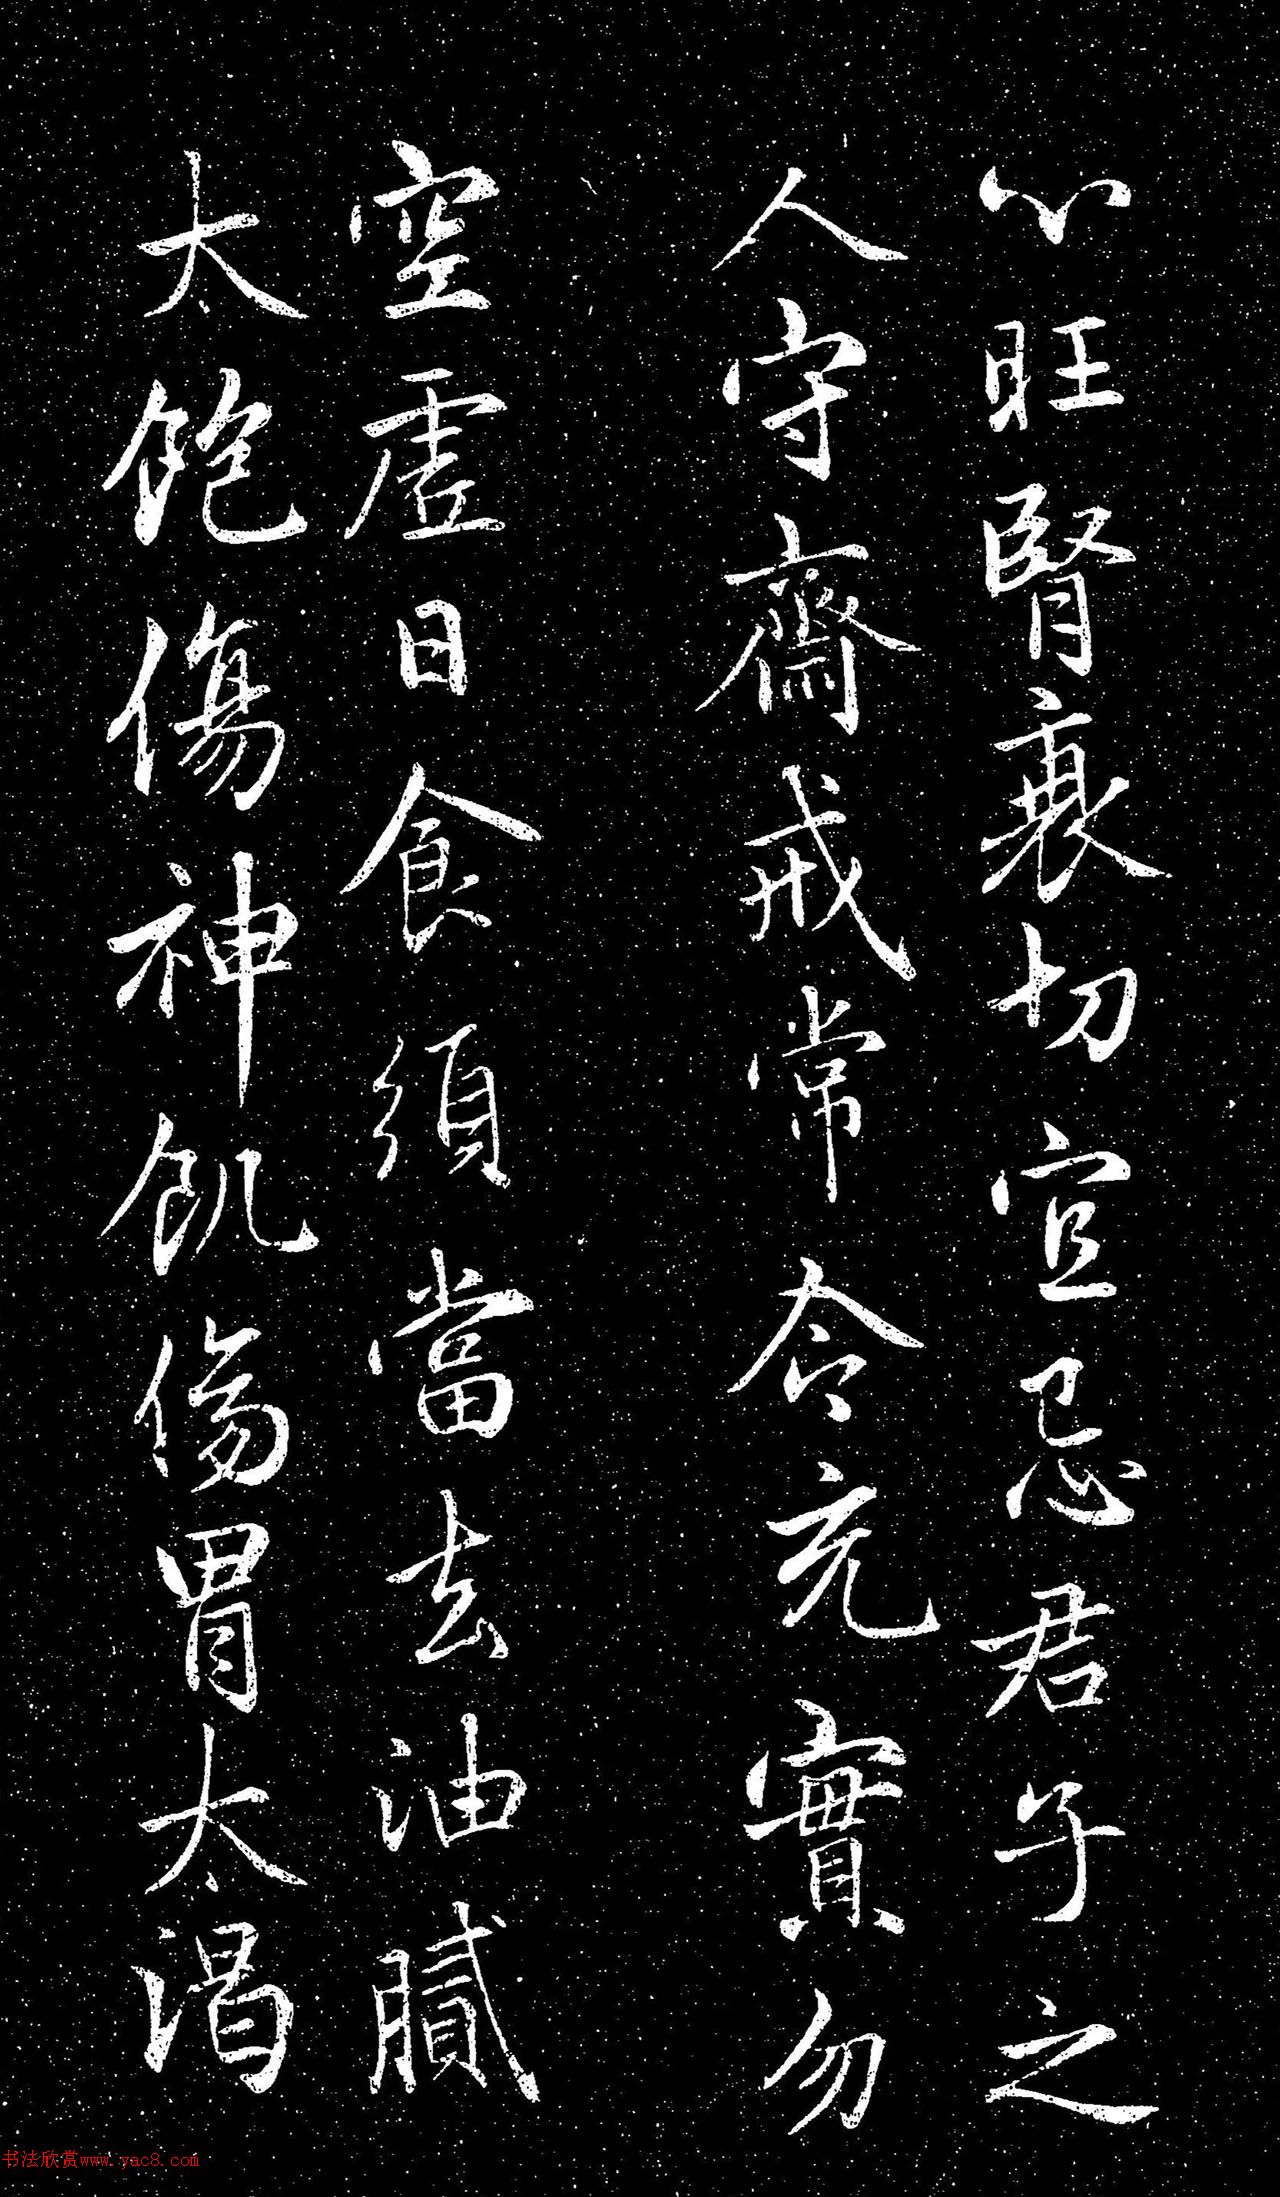 心旺腎衰切宜忌君子之
人守齋戒常令充實勿
空虛日食須當去油膩
太飽傷神飢傷胃太渴
书法欣赏www.yac8.com